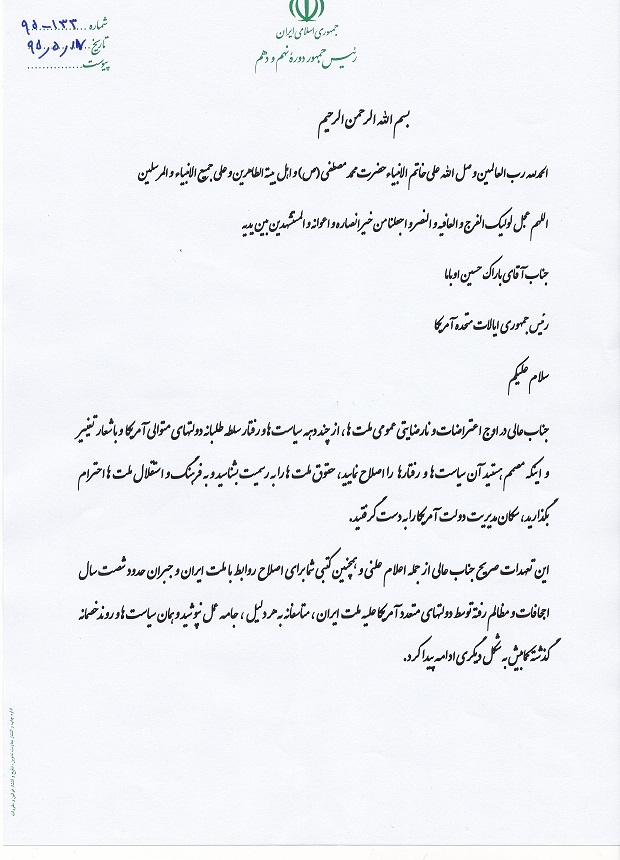 شماره ۹۵-۱۳۳
تاریخ ۹۵٫۵٫۱۷
پیوست
جمهوری اسلامی ایران
رئیس جمهور دورهٔ نهم و دهم
بسم الله الرحمن الرحیم
الحمدلله رب العالمین و صل الله علی خاتم الانبیاء حضرت محمد مصطفی (ص) و اهل بیته الطاهرین و علی جمیع الانبیاء و المرسلین
اللهم عجل لولیک الفرج و العافیه و النصر و اجعلنا من خیر انصاره و اعوانه و المستشهدین بین یدیه
جناب آقای باراک حسین اوباما
رئیس جمهوری ایالات متحده آمریکا
سلام علیکم
جناب عالی در اوج اعتراضات و نارضایتی عمومی ملت ها، از چند دهه سیاست ها و رفتار سلطه طلبانه دولتهای متوالی آمریکا و با شعار تغییر
و اینکه مصمم هستید آن سیاست ها و رفتارها را اصلاح نمایید، حقوق ملت ها را به رسمیت بشناسید و به فرهنگ و استقلال ملت ها احترام
بگذارید، سکان مدیریت دولت آمریکا را به دست گرفتید.
این تعهدات صریح جناب عالی از جمله اعلام علنی و همچنین کتبی شما برای اصلاح روابط با ملت ایران و جبران حدود شصت سال
اجحافات و مظالم رفته توسط دولتهای متعدد آمریکا علیه ملت ایران، متاسفانه به هر دلیل، جامه عمل نپوشید و همان سیاست ها و روند خصمانه
گذشته کمابیش به شکل دیگری ادامه پیدا کرد.